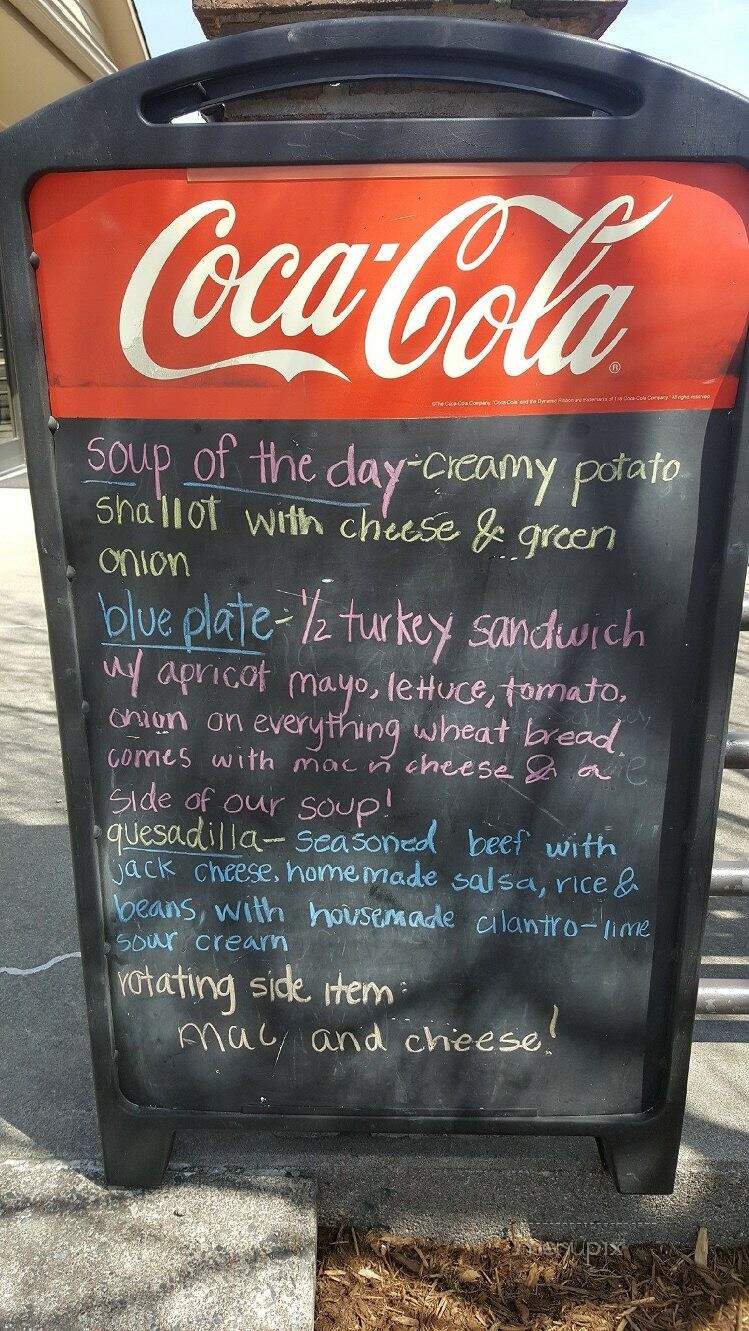 Coca-Cola
©The Coca-Cola Company. "Coca-Cola" and the Dynamic Ribbon are trademarks of The Coca-Cola Company. All rights reserved.
soup of the day-creamy potato
shallot with cheese & green
onion
blue plate-1/2 turkey sandwich
w/ apricot mayo, lettuce, tomato,
onion on everything wheat bread.
comes with mac n cheese & a
side of our soup!
quesadilla- seasoned beef with
jack cheese, homemade salsa, rice &
beans, with housemade cilantro-lime
sour cream
rotating side item:
mac and cheese!
menupix